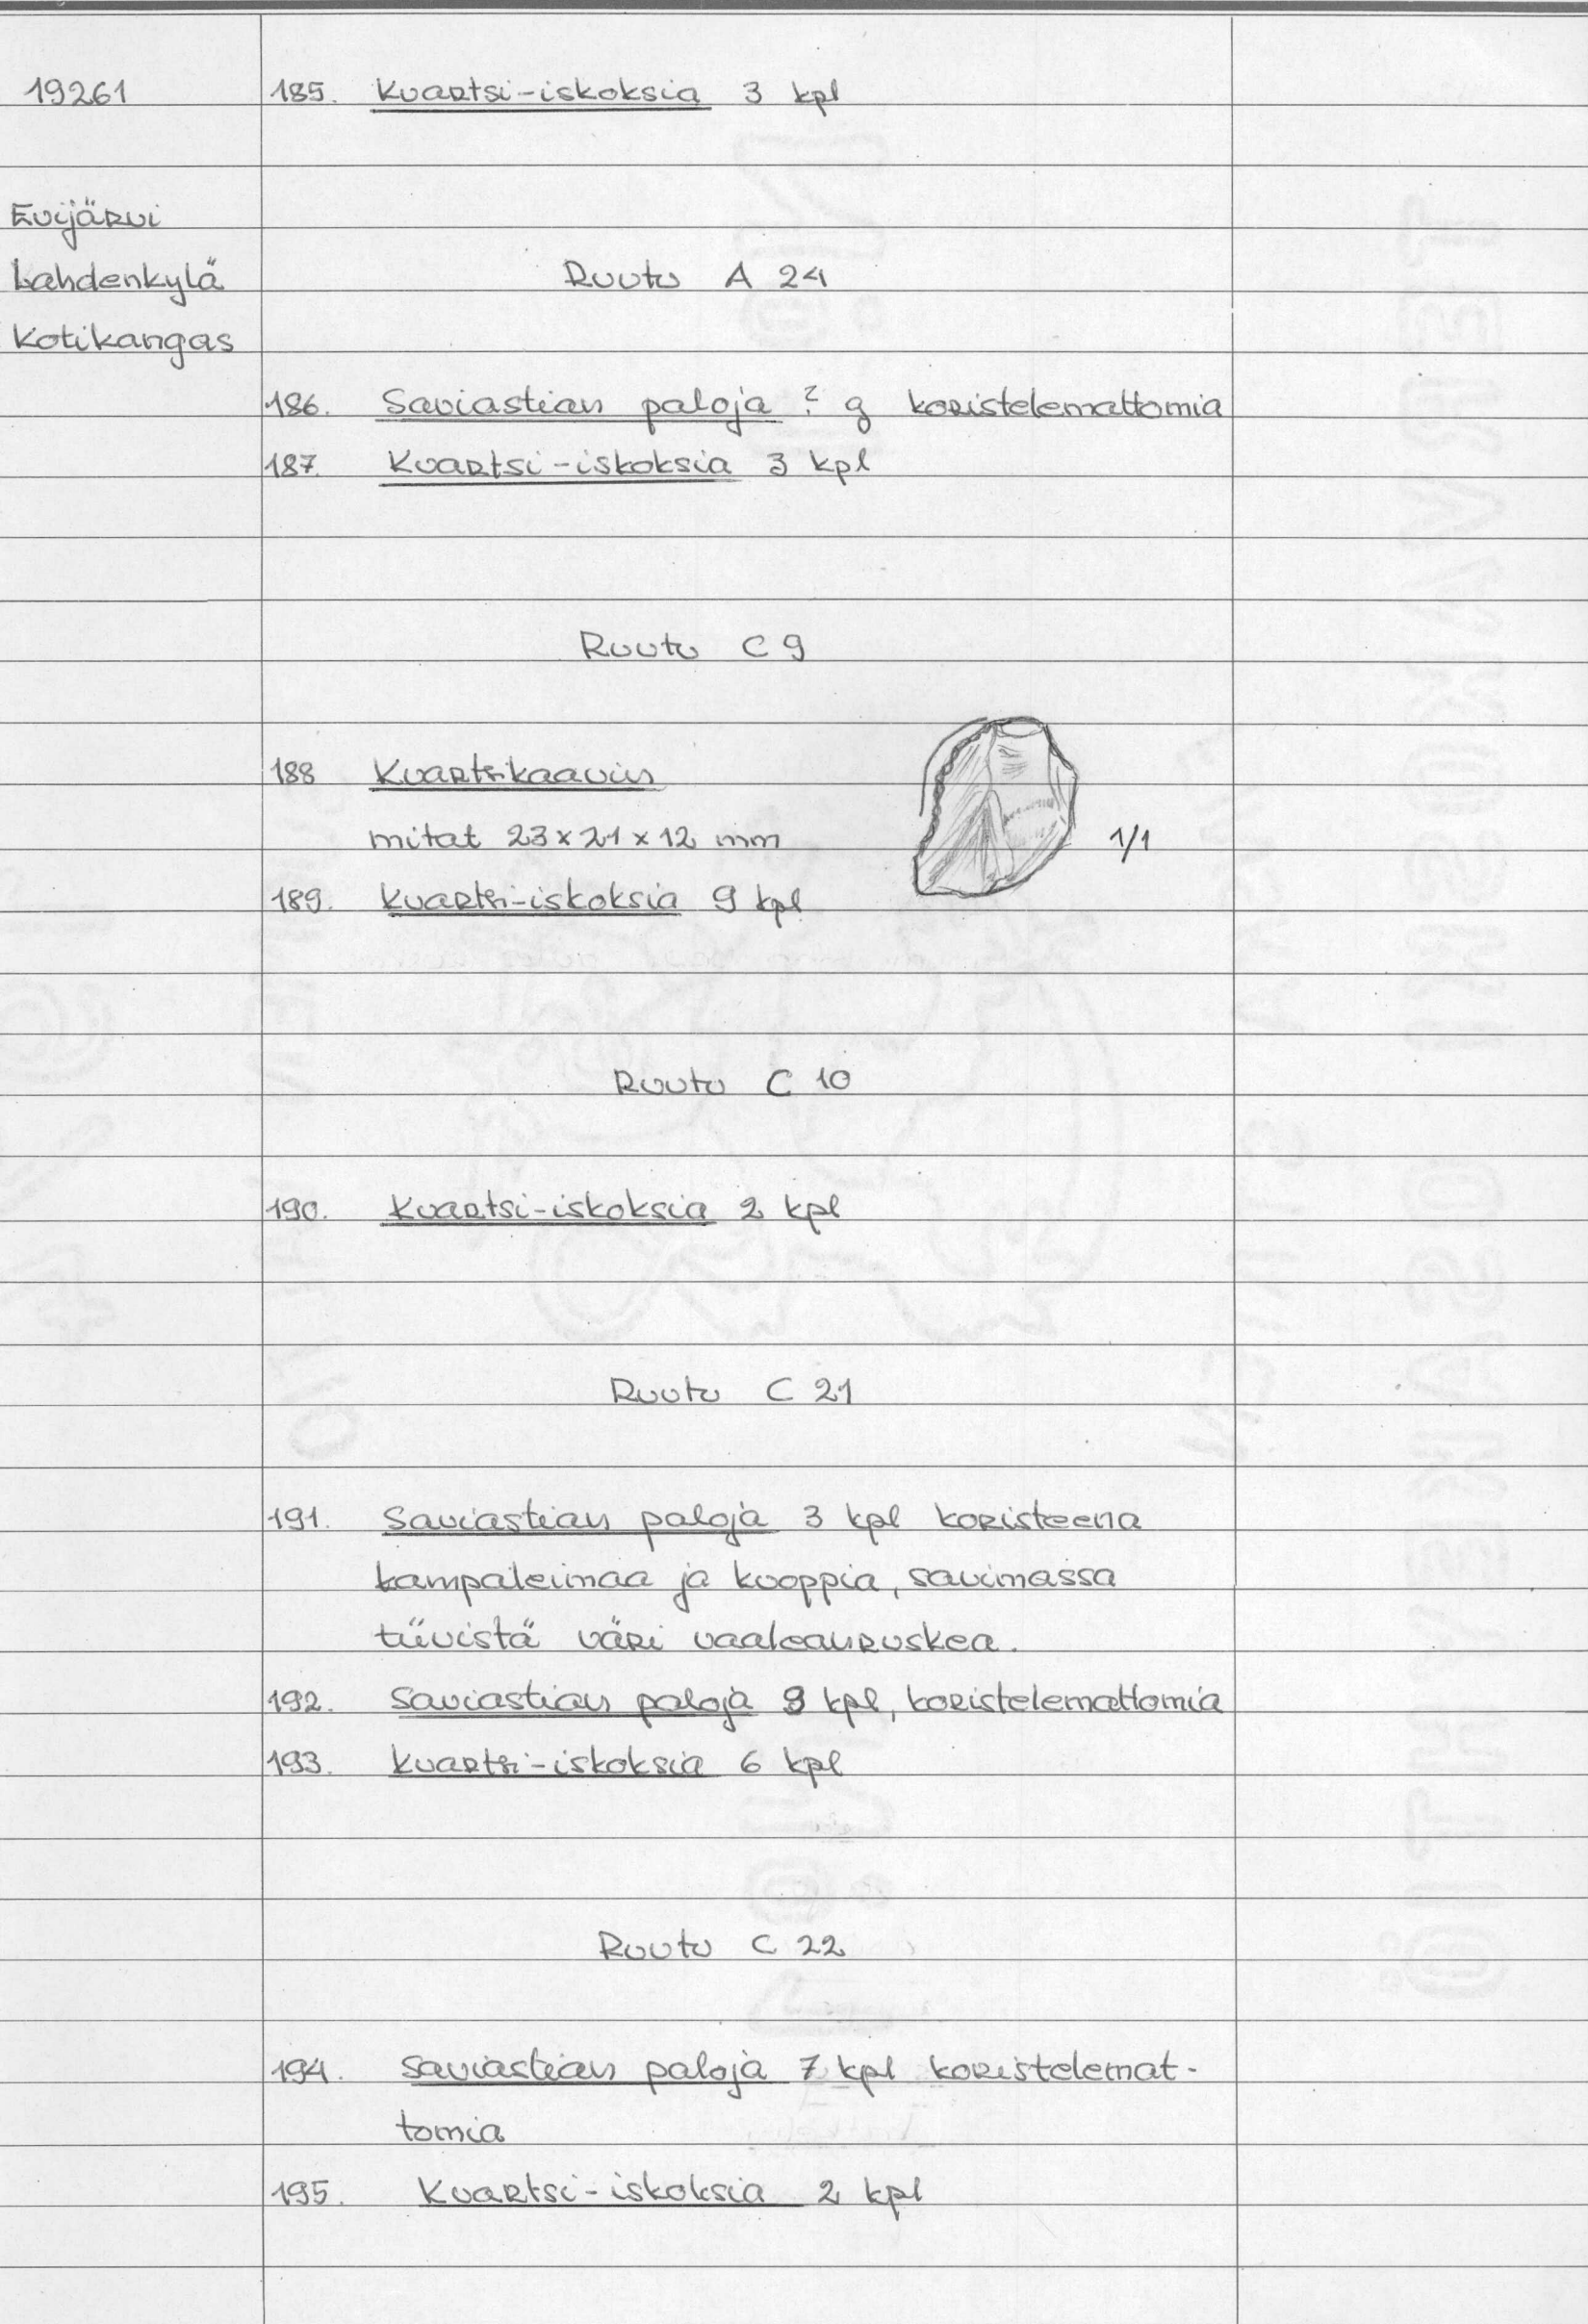 19261 185. Kvartsi-iskoksia 3 kpl
Evijärvi
Lahdenkylä Ruutu A 24
Kotikangas
186. Saviastian paloja ? g koristelemattomia
187. Kvartsi-iskoksia 3 kpl
Ruutu C 9
188 Kvartsikaavin
mitat 23 x 21 x 12 mm 1/1
189. Kvartsi-iskoksia 9 kpl
Ruutu C 10
190. Kvartsi-iskoksia 2 kpl
Ruutu C 21
191. Saviastian paloja 3 kpl koristeena
kampaleimaa ja kuoppia, savimassa
tiivistä väri vaaleanruskea.
192. Saviastian paloja 9 kpl, koristelemattomia
193. Kvartsi-iskoksia 6 kpl
Ruutu C 22
194. Saviastian paloja 7 kpl koristelemat-
tomia
195. Kvartsi-iskoksia 2 kpl